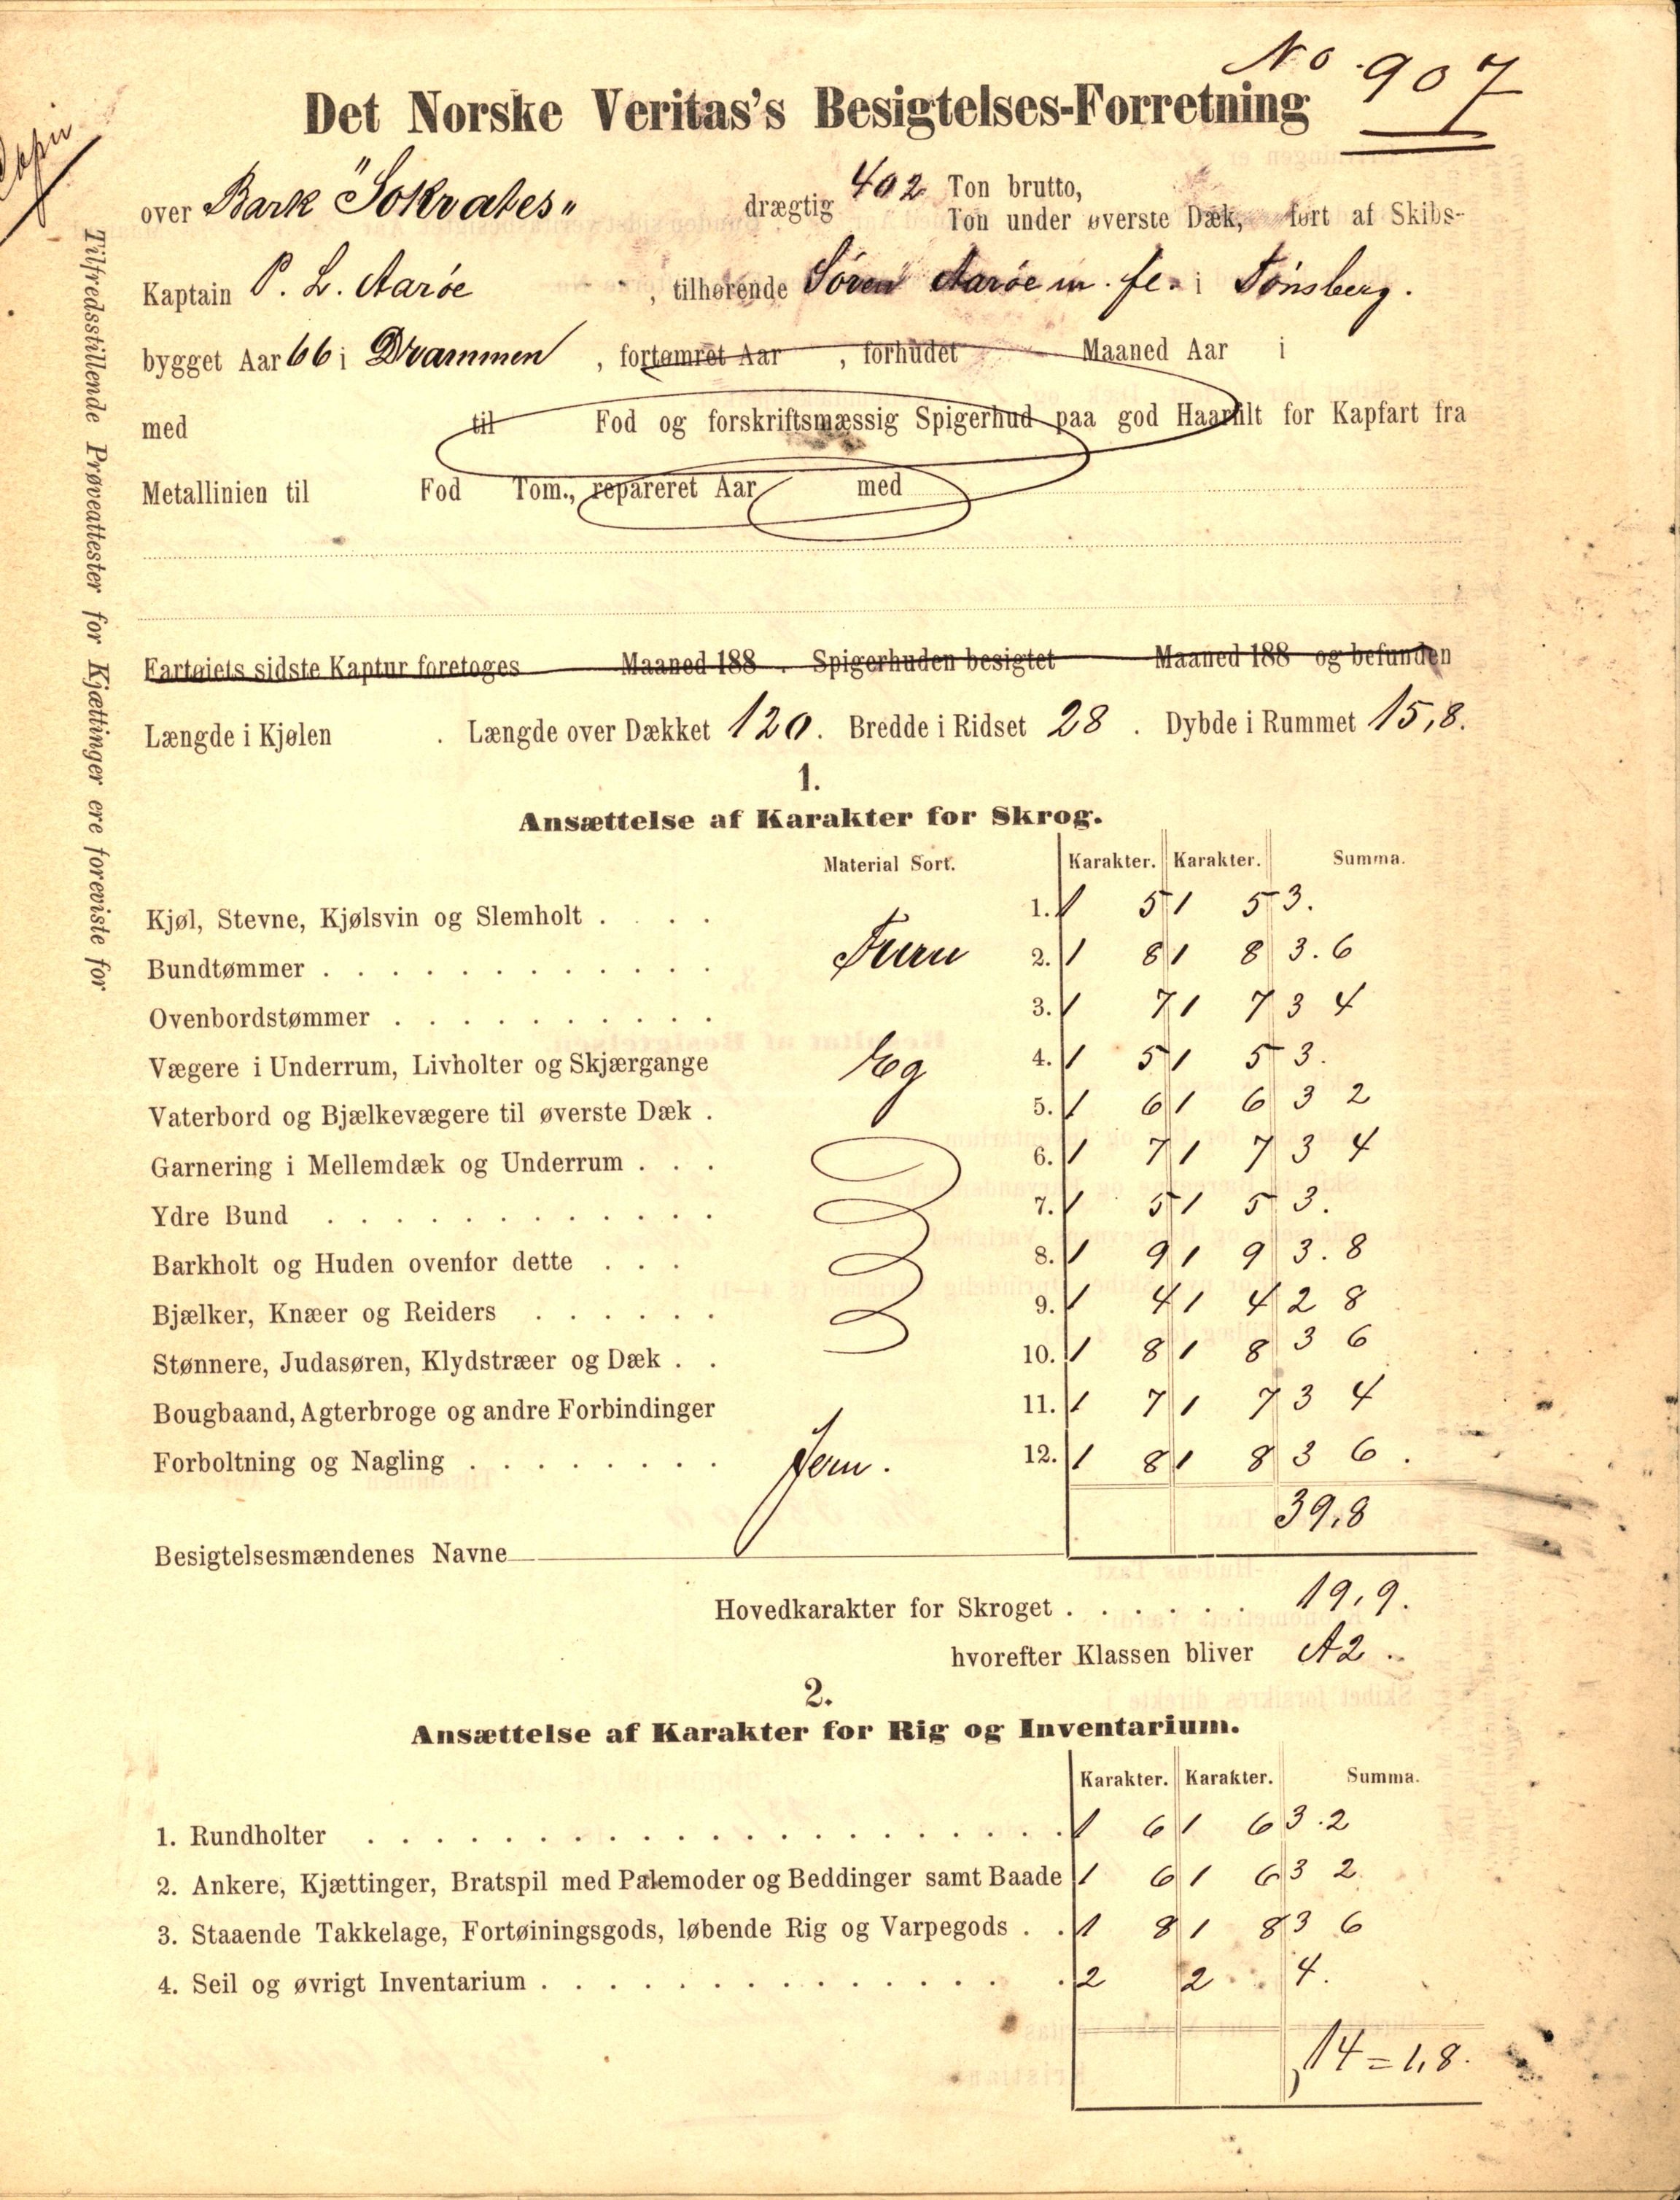 No. 907
Det Norske Veritas's Besigtelses-Forretning
Copie
over Bark "Sokrates" drægtig 402 Ton brutto,
Ton under øverste Dæk, ført af Skibs-
Kaptain P. L. Aarøe , tilhørende Søren Aarøe m. fl. i Tønsberg.
bygget Aar 66 i Drammen , fortømret Aar , forhudet Maaned Aar i
med til Fod og forskriftsmæssig Spigerhud paa god Haarfilt for Kapfart fra
Metallinien til Fod Tom., repareret Aar med
Fartøiets sidste Kaptur foretoges Maaned 188 . Spigerhuden besigtet Maaned 188 og befunden
Længde i Kjølen . Længde over Dækket 120. Bredde i Ridset 28 . Dybde i Rummet 15,8.
Tilfredsstillende Prøveattester for Kjættinger ere foreviste for
1.
Ansættelse af Karakter for Skrog.
Material Sort. Karakter. Karakter. Summa.
Kjøl, Stevne, Kjølsvin og Slemholt . . . . 1. 1 5 1 5 3.
Bundtømmer . . . . . . . . . . . . Furu 2. 1 8 1 8 3.6
Ovenbordstømmer . . . . . . . . . . 3. 1 7 1 7 3 4
Vægere i Underrum, Livholter og Skjærgange Eg 4. 1 5 1 5 3.
Vaterbord og Bjælkevægere til øverste Dæk . 5. 1 6 1 6 3 2
Garnering i Mellemdæk og Underrum . . . 6. 1 7 1 7 3 4
Ydre Bund . . . . . . . . . . . . 7. 1 5 1 5 3.
Barkholt og Huden ovenfor dette . . . 8. 1 9 1 9 3.8
Bjælker, Knæer og Reiders . . . . . . 9. 1 4 1 4 2 8
Stønnere, Judasøren, Klydstræer og Dæk . . 10. 1 8 1 8 3 6
Bougbaand, Agterbroge og andre Forbindinger 11. 1 7 1 7 3 4
Forboltning og Nagling . . . . . . . . Jern. 12. 1 8 1 8 3 6.
39,8
Besigtelsesmændenes Navne
Hovedkarakter for Skroget . . . . . . 19,9.
hvorefter Klassen bliver A2.
2.
Ansættelse af Karakter for Rig og Inventarium.
Karakter. Karakter. Summa.
1. Rundholter . . . . . . . . . . . . . . . . . . . . 1 6 1 6 3.2
2. Ankere, Kjættinger, Bratspil med Palemoder og Beddinger samt Baade 1 6 1 6 3 2
3. Staaende Takkelage, Fortøiningsgods, løbende Rig og Varpegods . . 1 8 1 8 3 6
4. Seil og øvrigt Inventarium . . . . . . . . . . . . . . . 2 2 4.
14 = 1,8.